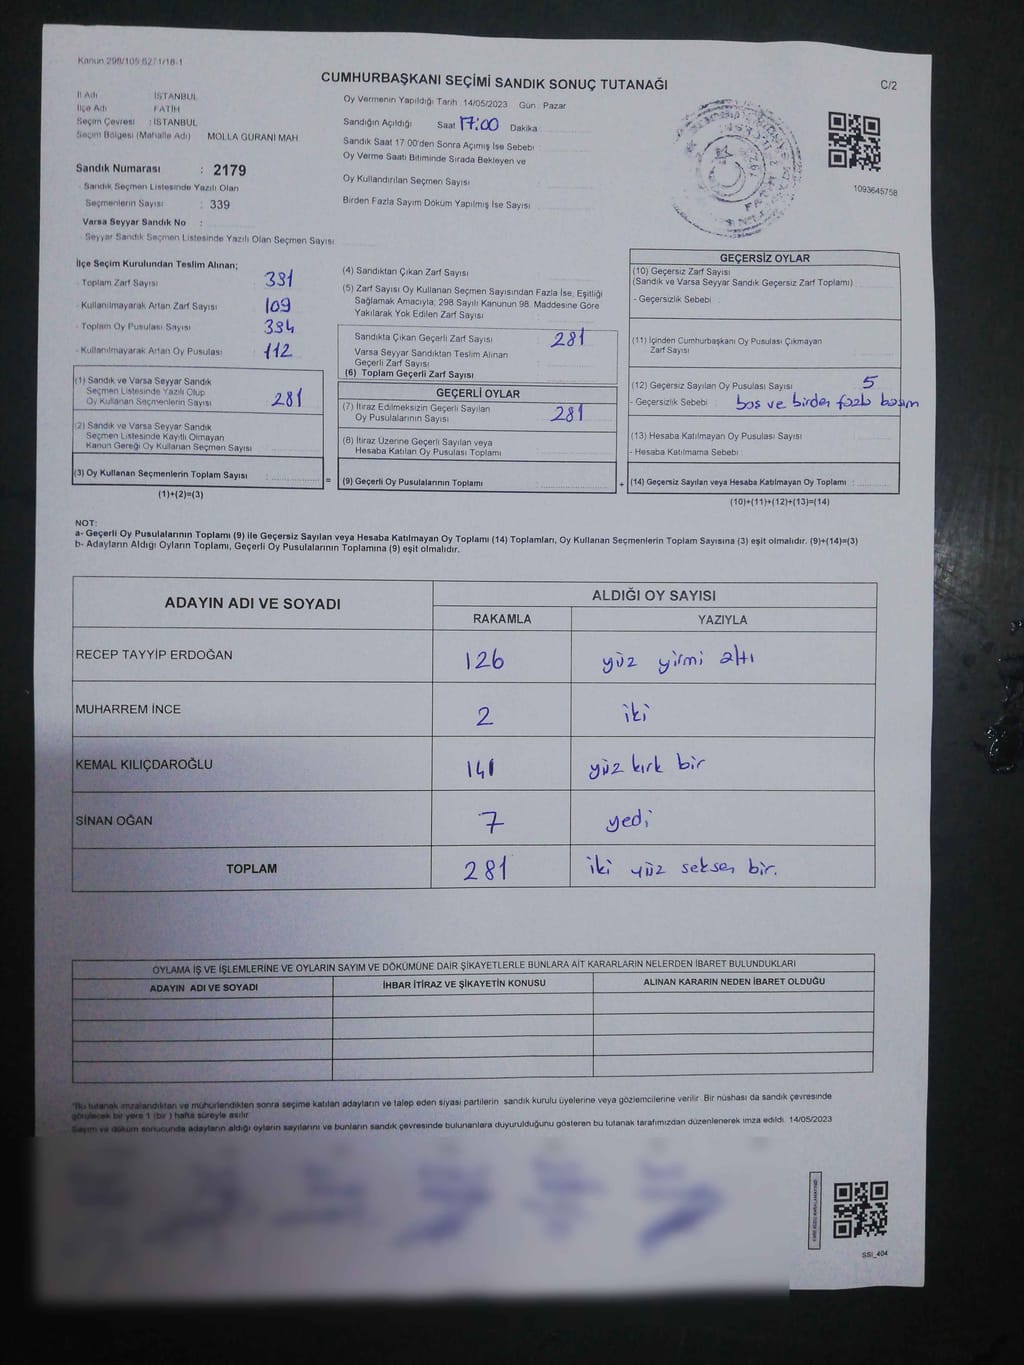 Kanun 298/105
CUMHURBAŞKANI SEÇİMİ SANDIK SONUÇ TUTANAĞI
C/2
İl Adı İSTANBUL
İlçe Adı FATİH
Seçim Çevresi : İSTANBUL
Seçim Bölgesi (Mahalle Adı) MOLLA GURANİ MAH
Sandık Numarası : 2179
- Sandık Seçmen Listesinde Yazılı Olan
Seçmenlerin Sayısı : 339
Varsa Seyyar Sandık No :
- Seyyar Sandık Seçmen Listesinde Yazılı Olan Seçmen Sayısı
Oy Vermenin Yapıldığı Tarih 14/05/2023 Gün : Pazar
Sandığın Açıldığı Saat 17:00 Dakika
Sandık Saat 17.00'den Sonra Açılmış İse Sebebi
Oy Verme Saati Bitiminde Sırada Bekleyen ve
Oy Kullandırılan Seçmen Sayısı
Birden Fazla Sayım Döküm Yapılmış İse Sayısı
1093645758
İlçe Seçim Kurulundan Teslim Alınan;
- Toplam Zarf Sayısı 391
- Kullanılmayarak Artan Zarf Sayısı 109
- Toplam Oy Pusulası Sayısı 394
- Kullanılmayarak Artan Oy Pusulası 112
(1) Sandık ve Varsa Seyyar Sandık
Seçmen Listesinde Yazılı Olup
Oy Kullanan Seçmenlerin Sayısı 281
(2) Sandık ve Varsa Seyyar Sandık
Seçmen Listesinde Kayıtlı Olmayan
Kanun Gereği Oy Kullanan Seçmen Sayısı
(3) Oy Kullanan Seçmenlerin Toplam Sayısı :
(1)+(2)=(3)
=
(4) Sandıktan Çıkan Zarf Sayısı
(5) Zarf Sayısı Oy Kullanan Seçmen Sayısından Fazla İse, Eşitliği
Sağlamak Amacıyla; 298 Sayılı Kanunun 98. Maddesine Göre
Yakılarak Yok Edilen Zarf Sayısı
Sandıkta Çıkan Geçerli Zarf Sayısı 281
Varsa Seyyar Sandıktan Teslim Alınan
Geçerli Zarf Sayısı
(6) Toplam Geçerli Zarf Sayısı
GEÇERLİ OYLAR
(7) İtiraz Edilmeksizin Geçerli Sayılan
Oy Pusulalarının Sayısı 281
(8) İtiraz Üzerine Geçerli Sayılan veya
Hesaba Katılan Oy Pusulası Toplamı
(9) Geçerli Oy Pusulalarının Toplamı
+
GEÇERSİZ OYLAR
(10) Geçersiz Zarf Sayısı
(Sandık ve Varsa Seyyar Sandık Geçersiz Zarf Toplamı)
- Geçersizlik Sebebi
(11) İçinden Cumhurbaşkanı Oy Pusulası Çıkmayan
Zarf Sayısı
(12) Geçersiz Sayılan Oy Pusulası Sayısı 5
- Geçersizlik Sebebi : boş ve birden fazla basım
(13) Hesaba Katılmayan Oy Pusulası Sayısı
- Hesaba Katılmama Sebebi
(14) Geçersiz Sayılan veya Hesaba Katılmayan Oy Toplamı :
(10)+(11)+(12)+(13)=(14)
NOT:
a- Geçerli Oy Pusulalarının Toplamı (9) ile Geçersiz Sayılan veya Hesaba Katılmayan Oy Toplamı (14) Toplamları, Oy Kullanan Seçmenlerin Toplam Sayısına (3) eşit olmalıdır. (9)+(14)=(3)
b- Adayların Aldığı Oyların Toplamı, Geçerli Oy Pusulalarının Toplamına (9) eşit olmalıdır.
ADAYIN ADI VE SOYADI ALDIĞI OY SAYISI
RAKAMLA YAZIYLA
RECEP TAYYİP ERDOĞAN 126 yüz yirmi altı
MUHARREM İNCE 2 iki
KEMAL KILIÇDAROĞLU 141 yüz kırk bir
SİNAN OĞAN 7 yedi
TOPLAM 281 iki yüz seksen bir.
OYLAMA İŞ VE İŞLEMLERİNE VE OYLARIN SAYIM VE DÖKÜMÜNE DAİR ŞİKAYETLERLE BUNLARA AİT KARARLARIN NELERDEN İBARET BULUNDUKLARI
ADAYIN ADI VE SOYADI İHBAR İTİRAZ VE ŞİKAYETİN KONUSU ALINAN KARARIN NEDEN İBARET OLDUĞU
*Bu tutanak imzalandıktan ve mühürlendikten sonra seçime katılan adayların ve talep eden siyasi partilerin sandık kurulu üyelerine veya gözlemcilerine verilir. Bir nüshası da sandık çevresinde
görülecek bir yere 1 (bir) hafta süreyle asılır.
Sayım ve döküm sonucunda adayların aldığı oyların sayılarını ve bunların sandık çevresinde bulunanlara duyurulduğunu gösteren bu tutanak tarafımızdan düzenlenerek imza edildi. 14/05/2023
SSI_404